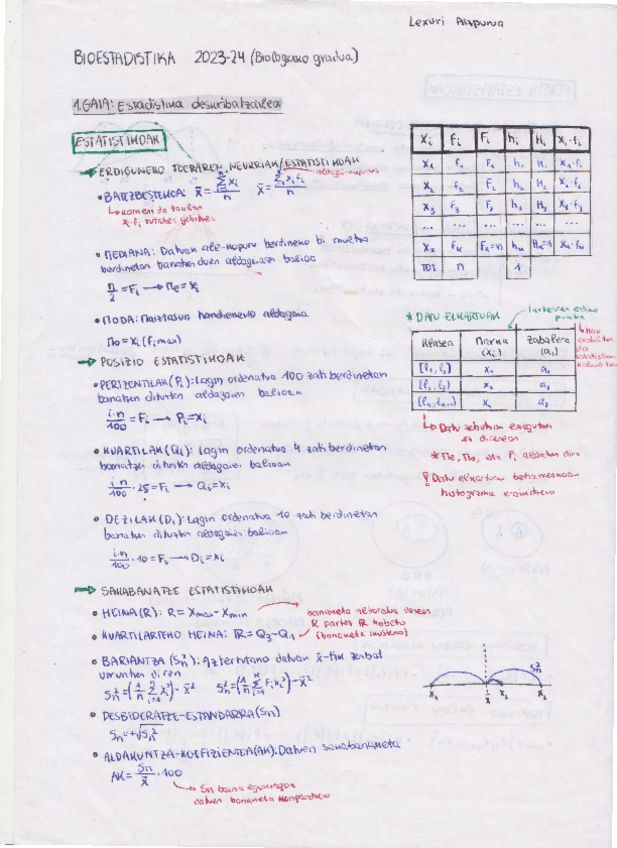 Lexuri Aizpurua
BIOESTADISTIKA 2023-24 (Biologiako gradua)
1.GAIA: Estadistika deskribatzailea
ESTATISTIKOAK
ERDIGUNEKO JOERAREN NEURRIAK/ESTATISTIKOAK
BATEZBESTEKOA: x̄ = Σxi/n x̄ = Σxi fi/n
komeni da taulan
xi·fi zutabea gehitzea
MEDIANA: Datuak ale-kopuru berdineko bi multzo
berdinetan banatzen duen aldagaiaren balioa
n/2 = Fi → Me = xi
MODA: Maiztasun handieneko aldagaia
Mo = xi (fi max)
POSIZIO ESTATISTIKOAK
PERTZENTILAK (Pi): Lagin ordenatua 100 zati berdinetan
banatzen dituzten aldagaien balioak
i·n/100 = Fi → Pi = xi
KUARTILAK (Qi): Lagin ordenatua 4 zati berdinetan
banatzen dituzten aldagaien balioak
i·n/100 · 25 = Fi → Qi = xi
DEZILAK (Di): Lagin ordenatua 10 zati berdinetan
banatzen dituzten aldagaien balioak
i·n/100 · 10 = Fi → Di = xi
SAKABANATZE ESTATISTIKOAK
HEINA (R): R = xmax - xmin
KUARTILARTEKO HEINA: IR = Q3 - Q1
BARIANTZA (Sn²): Aztertutako datuak x̄-tik zenbat
urruntzen diren
Sn² = (1/n Σ xi²) - x̄² Sn² = (1/n Σ Fi xi²) - x̄²
DESBIDERATZE-ESTANDARRA (Sn)
Sn = +√Sn²
ALDAKUNTZA-KOEFIZIENTEA (AK): Datuen sakabanaketa
AK = Sn/x̄ · 100
Sn baino egokiagoa
datuen banaketa konparatzeko
xi fi Fi hi Hi xi·fi
x1 f1 F1 h1 H1 x1·f1
x2 f2 F2 h2 H2 x2·f2
x3 f3 F3 h3 H3 x3·f3
... ... ... ... ... ...
xk fk Fk=n hk Hk=1 xk·fk
TOT n 1
* DATU ELKARTUAK
tartearen erdiko
puntua
Klasea Marka (xi) Zabalera (ai)
[l1, l2] x1 a1
[l2, l3) x2 a2
Datu zehatzak ezagutzen
ez direnean
* Me, Mo, eta Pi aldatzen dira
histograma
x1 x̄ x2 x3
Sn²